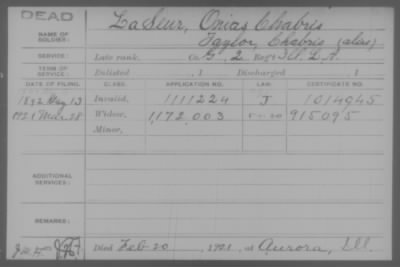 DEAD
NAME OF SOLDIER: LaSeur, Onias Chabris
Taylor, Chabris (alias)
SERVICE: Late rank, Co. G, 2 Reg't Ill. L.A.
TERM OF SERVICE: Enlisted , 1 Discharged , 1
DATE OF FILING. CLASS. APPLICATION NO. LAW. CERTIFICATE NO.
1892 May 13 Invalid, 1111224 J 1014945
1921 Mar. 28 Widow, 1172.003 915095
Minor,
ADDITIONAL SERVICES:
REMARKS:
Died Feb 20, 1921, at Aurora, Ill.